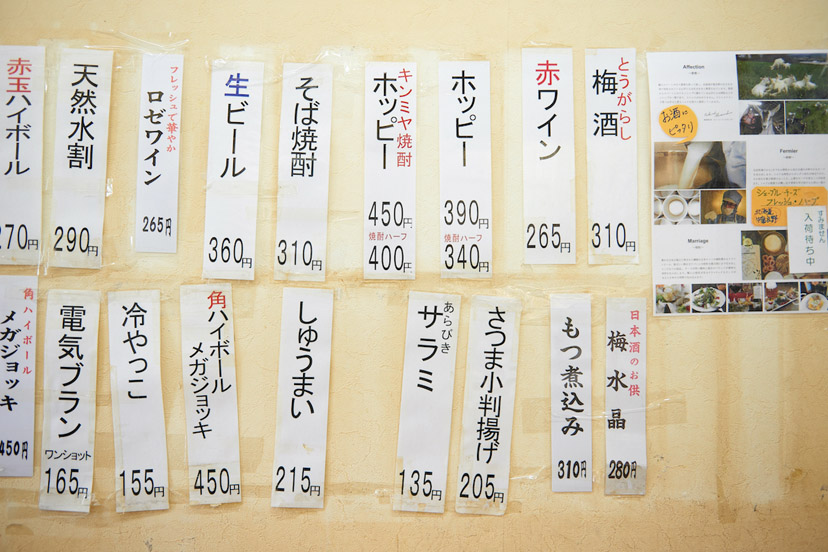 とうがらし
梅酒
310円
赤ワイン
265円
ホッピー
390円
焼酎ハーフ
340円
キンミヤ焼酎
ホッピー
450円
焼酎ハーフ
400円
そば焼酎
310円
生ビール
360円
フレッシュで華やか
ロゼワイン
265円
天然水割
290円
赤玉ハイボール
270円
日本酒のお供
梅水晶
280円
もつ煮込み
310円
さつま小判揚げ
205円
あらびき
サラミ
135円
しゅうまい
215円
角ハイボール
メガジョッキ
450円
冷やっこ
155円
電気ブラン
ワンショット
165円
角ハイボール
メガジョッキ
450円
Affection
お酒に
ピッタリ
Fermier
シェーブルチーズ
フレッシュ・ハーブ
すみません
入荷待ち中
Marriage